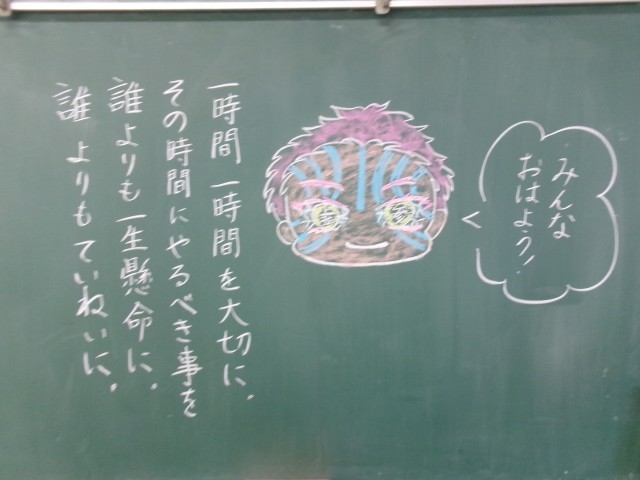 みんな
おはよう！
一時間一時間を大切に。
その時間にやるべき事を
誰よりも一生懸命に。
誰よりもていねいに。